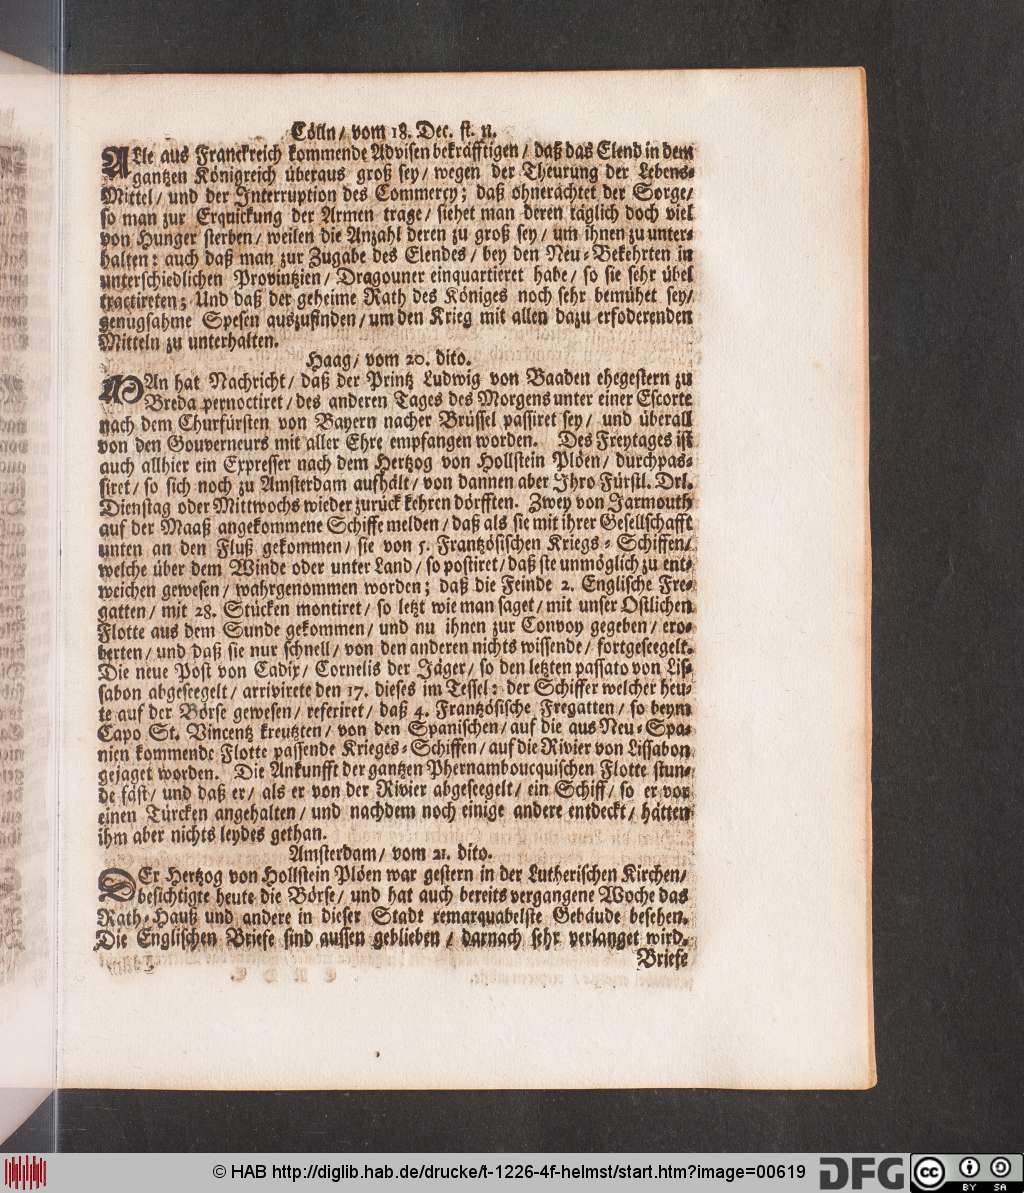 Cölln/ vom 18. Dec. st. n.
ALle aus Franckreich kommende Advisen bekräfftigen/ daß das Elend in dem
gantzen Königreich überaus groß sey/ wegen der Theurung der Lebens-
Mittel/ und der Interruption des Commercy; daß ohnerachtet der Sorge/
so man zur Erquickung der Armen trage/ siehet man deren täglich doch viel
von Hunger sterben/ weilen die Anzahl deren zu groß sey/ um ihnen zu unter-
halten: auch daß man zur Zugabe des Elendes/ bey den Neu-Bekehrten in
unterschiedlichen Provintzien/ Dragouner einquartieret habe/ so sie sehr übel
tractireten; Und daß der geheime Rath des Königes noch sehr bemühet sey/
genugsahme Spesen auszufinden/ um den Krieg mit allen dazu erfoderenden
Mitteln zu unterhalten.
Haag/ vom 20. dito.
MAn hat Nachricht/ daß der Printz Ludwig von Baaden ehegestern zu
Breda pernoctiret/ des anderen Tages des Morgens unter einer Escorte
nach dem Churfürsten von Bayern nacher Brüssel passiret sey/ und überall
von den Gouverneurs mit aller Ehre empfangen worden. Des Freytages ist
auch allhier ein Expresser nach dem Hertzog von Hollstein Plöen/ durchpas-
siret/ so sich noch zu Amsterdam aufhält/ von dannen aber Ihro Fürstl. Drl.
Dienstag oder Mittwochs wieder zurück kehren dörfften. Zwey von Jarmouth
auf der Maaß angekommene Schiffe melden/ daß als sie mit ihrer Gesellschafft
unten an den Fluß gekommen/ sie von 5. Frantzösischen Kriegs-Schiffen/
welche über dem Winde oder unter Land/ so postiret/ daß sie unmöglich zu ent-
weichen gewesen/ wahrgenommen worden; daß die Feinde 2. Englische Fre-
gatten/ mit 28. Stücken montiret/ so letzt wie man saget/ mit unser Ostlichen
Flotte aus dem Sunde gekommen/ und nu ihnen zur Convoy gegeben/ ero-
berten/ und daß sie nur schnell/ von den anderen nichts wissende/ fortgeseegelt.
Die neue Post von Cadix/ Cornelis der Jäger/ so den letzten passato von Lis-
sabon abgeseegelt/ arrivirete den 17. dieses im Tessel: der Schiffer welcher heu-
te auf der Börse gewesen/ referiret/ daß 4. Frantzösische Fregatten/ so beym
Capo St. Vincentz kreutzten/ von den Spanischen/ auf die aus Neu-Spa-
nien kommende Flotte passende Krieges-Schiffen/ auf die Rivier von Lissabon
gejaget worden. Die Ankunfft der gantzen Phernamboucquischen Flotte stun-
de fäst/ und daß er/ als er von der Rivier abgeseegelt/ ein Schiff/ so er vor
einen Türcken angehalten/ und nachdem noch einige andere entdeckt/ hätten
ihm aber nichts leydes gethan.
Amsterdam/ vom 21. dito.
DEr Hertzog von Hollstein Plöen war gestern in der Lutherischen Kirchen/
besichtigte heute die Börse/ und hat auch bereits vergangene Woche das
Rath-Hauß und andere in dieser Stadt remarquabelste Gebäude besehen.
Die Englischen Briefe sind aussen geblieben/ darnach sehr verlanget wird.
Briefe
© HAB http://diglib.hab.de/drucke/t-1226-4f-helmst/start.htm?image=00619
DFG
cc BY SA